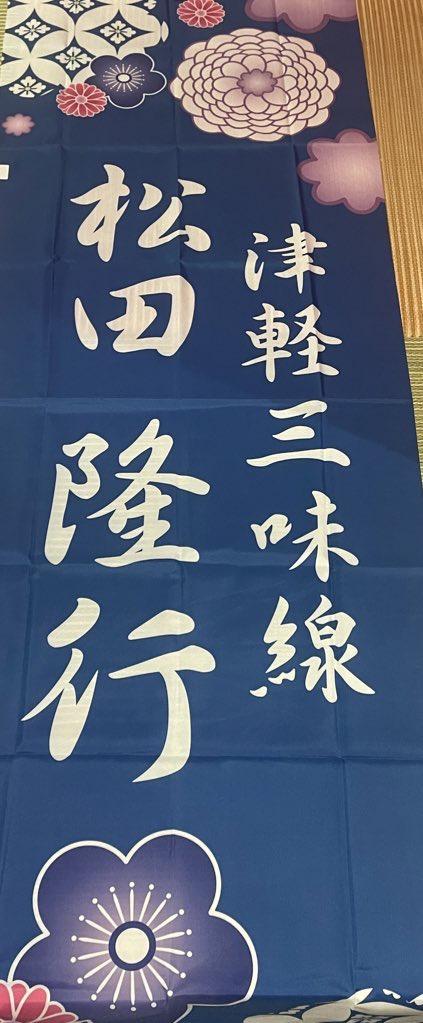 津軽三味線
松田隆行